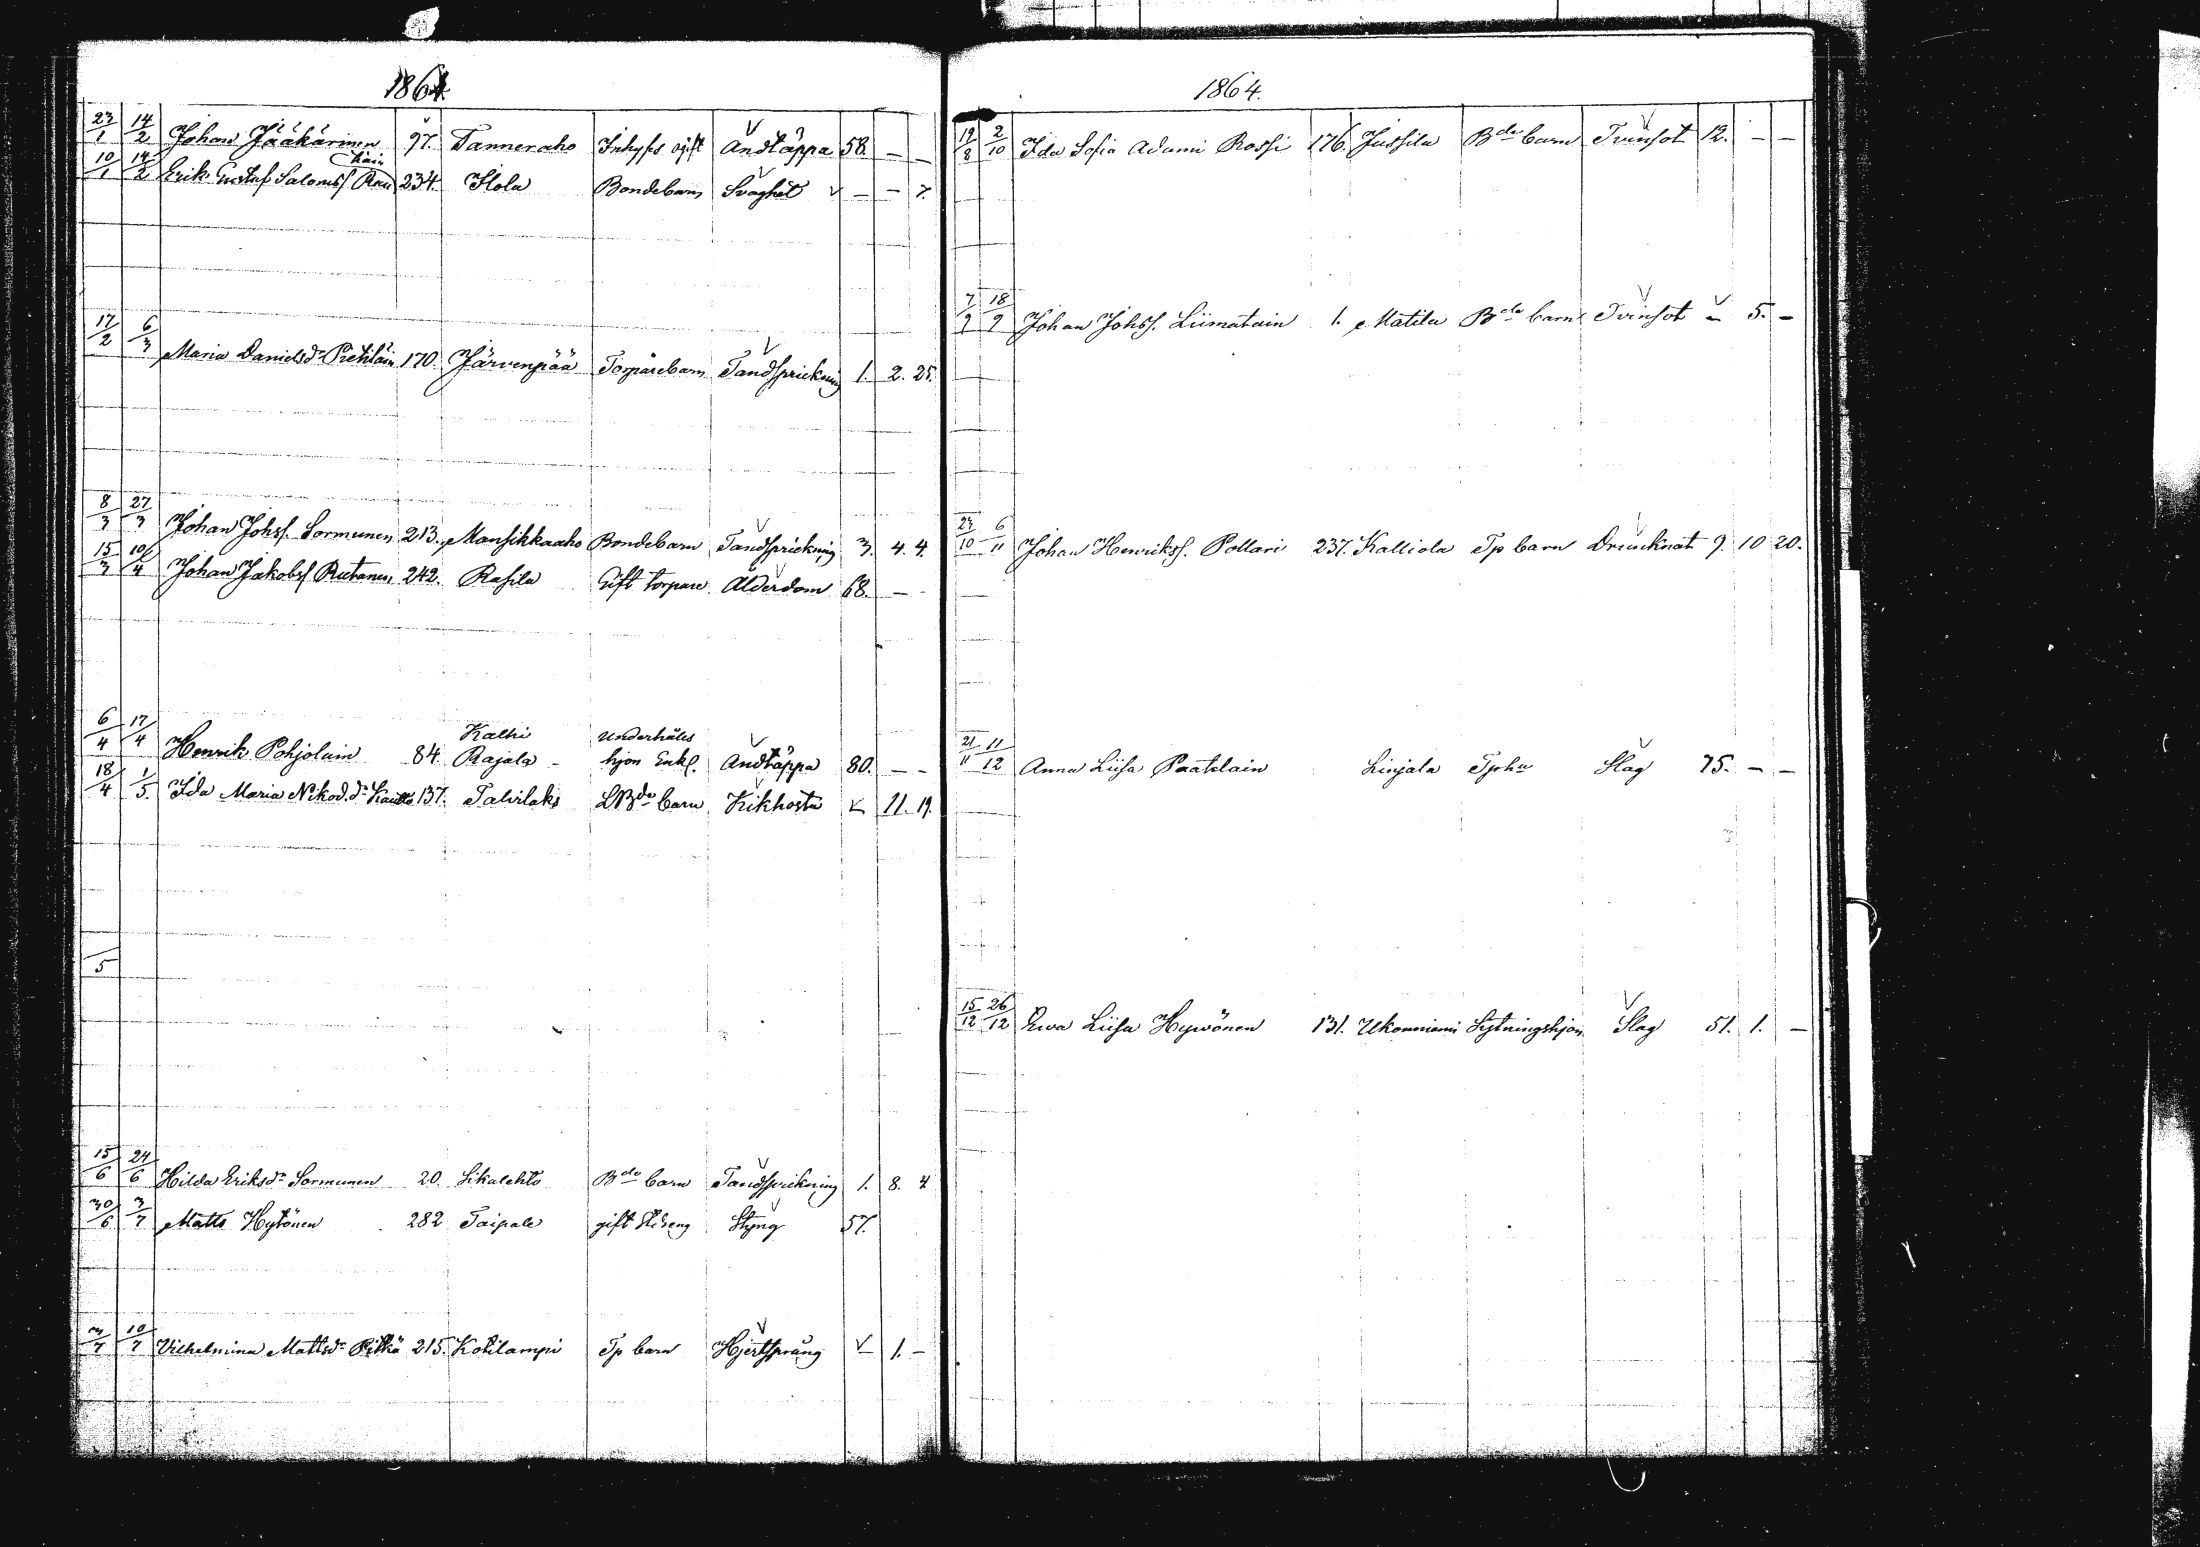 1864.
23/1 14/2 Johan Jääkärinen 97. Tanneraho Inhyses gift Andtäppa 58. — —
10/1 14/2 Erik Gustaf Salomss Rau 234. Ilola Bondebarn Svaghet — — 7.
17/2 6/3 Maria Danielsdr Pietiläin 170. Järvenpää Torparebarn Tandsprickning 1. 2. 25.
8/3 27/3 Johan Johss. Sormunen 213. Mansikkaaho Bondebarn Tandsprickning 3. 4. 4.
15/3 10/4 Johan Jakobss Rutanen 242. Rasila Gift torpare Ålderdom 68. —
Kalhi Underhålls
6/4 17/4 Henrik Pohjolain 84. Rajala hjon Enkl. Andtäppa 80. — —
18/4 1/5. Ida Maria Nikod.dr 137. Talvilaks LBde barn Kikhosta 11. 19.
/5
15/6 24/6 Hilda Eriksdr Sormunen 20. Sikalehto Bde barn Tandsprikning 1. 8. 4
30/6 3/7 Matts Hytönen 282 Taipale gift Styng 57.
3/7 10/7 Vilhelmina Mattsdr Pitkä 215. Kotilampi Tp barn Hjertsprång 1. —
1864.
19/8 2/10 Ida Sofia Adami Rossi 176. Jussila Bde barn Tvinsot 12. — —
7/9 18/9 Johan Johss. Liimatain 1. Matila Bde barn Tvinsot — 5. —
23/10 6/11 Johan Henrikss. Pollari 237. Kalliola Tp barn Drunknat 9. 10 20.
21/11 11/12 Anna Liisa Paatelain Linjala Tphu Slag 75. — —
15/12 26/12 Ewa Liisa Hywönen 131. Ukonniemi Sytningshjon Slag 51. 1. —